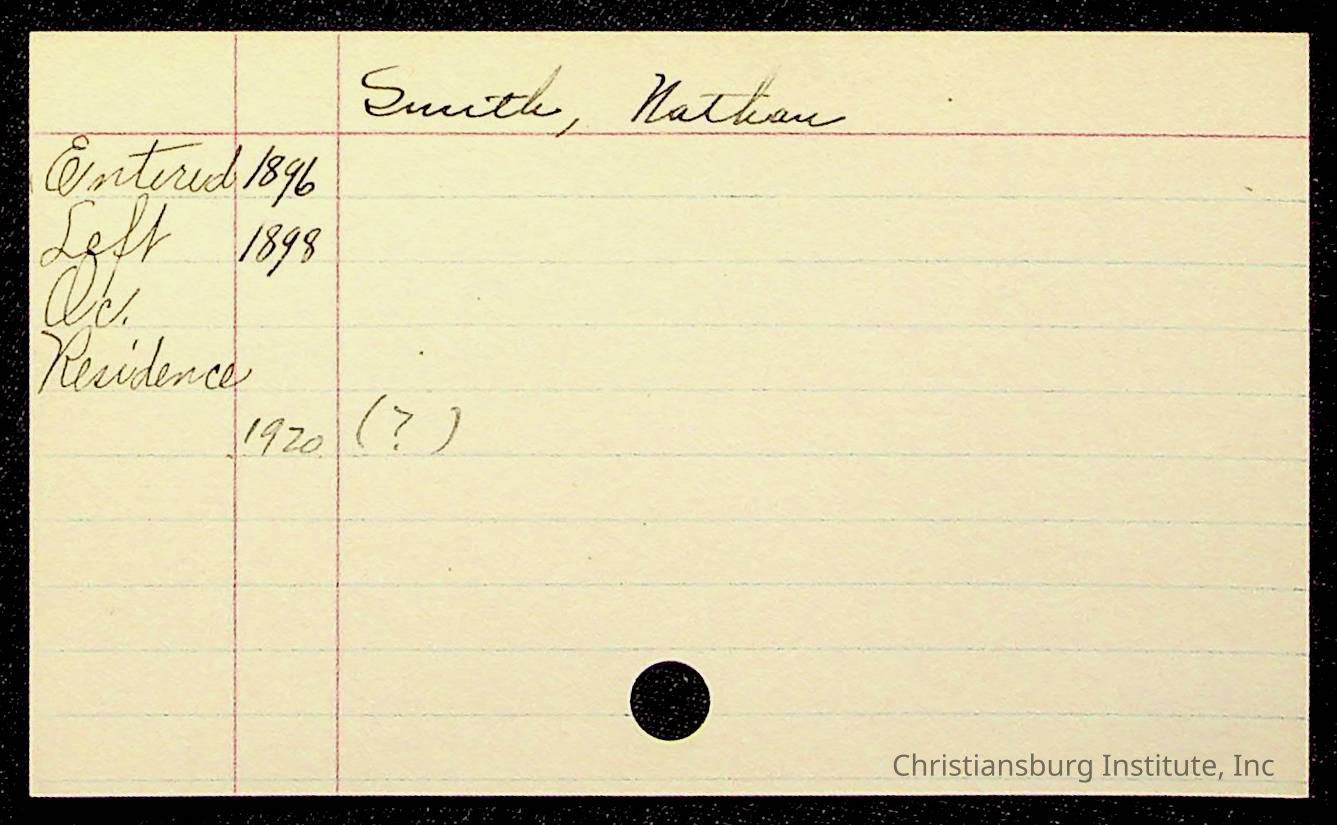 Smith, Nathan
Entered 1896
Left 1898
Oc.
Residence
1920 (?)
Christiansburg Institute, Inc